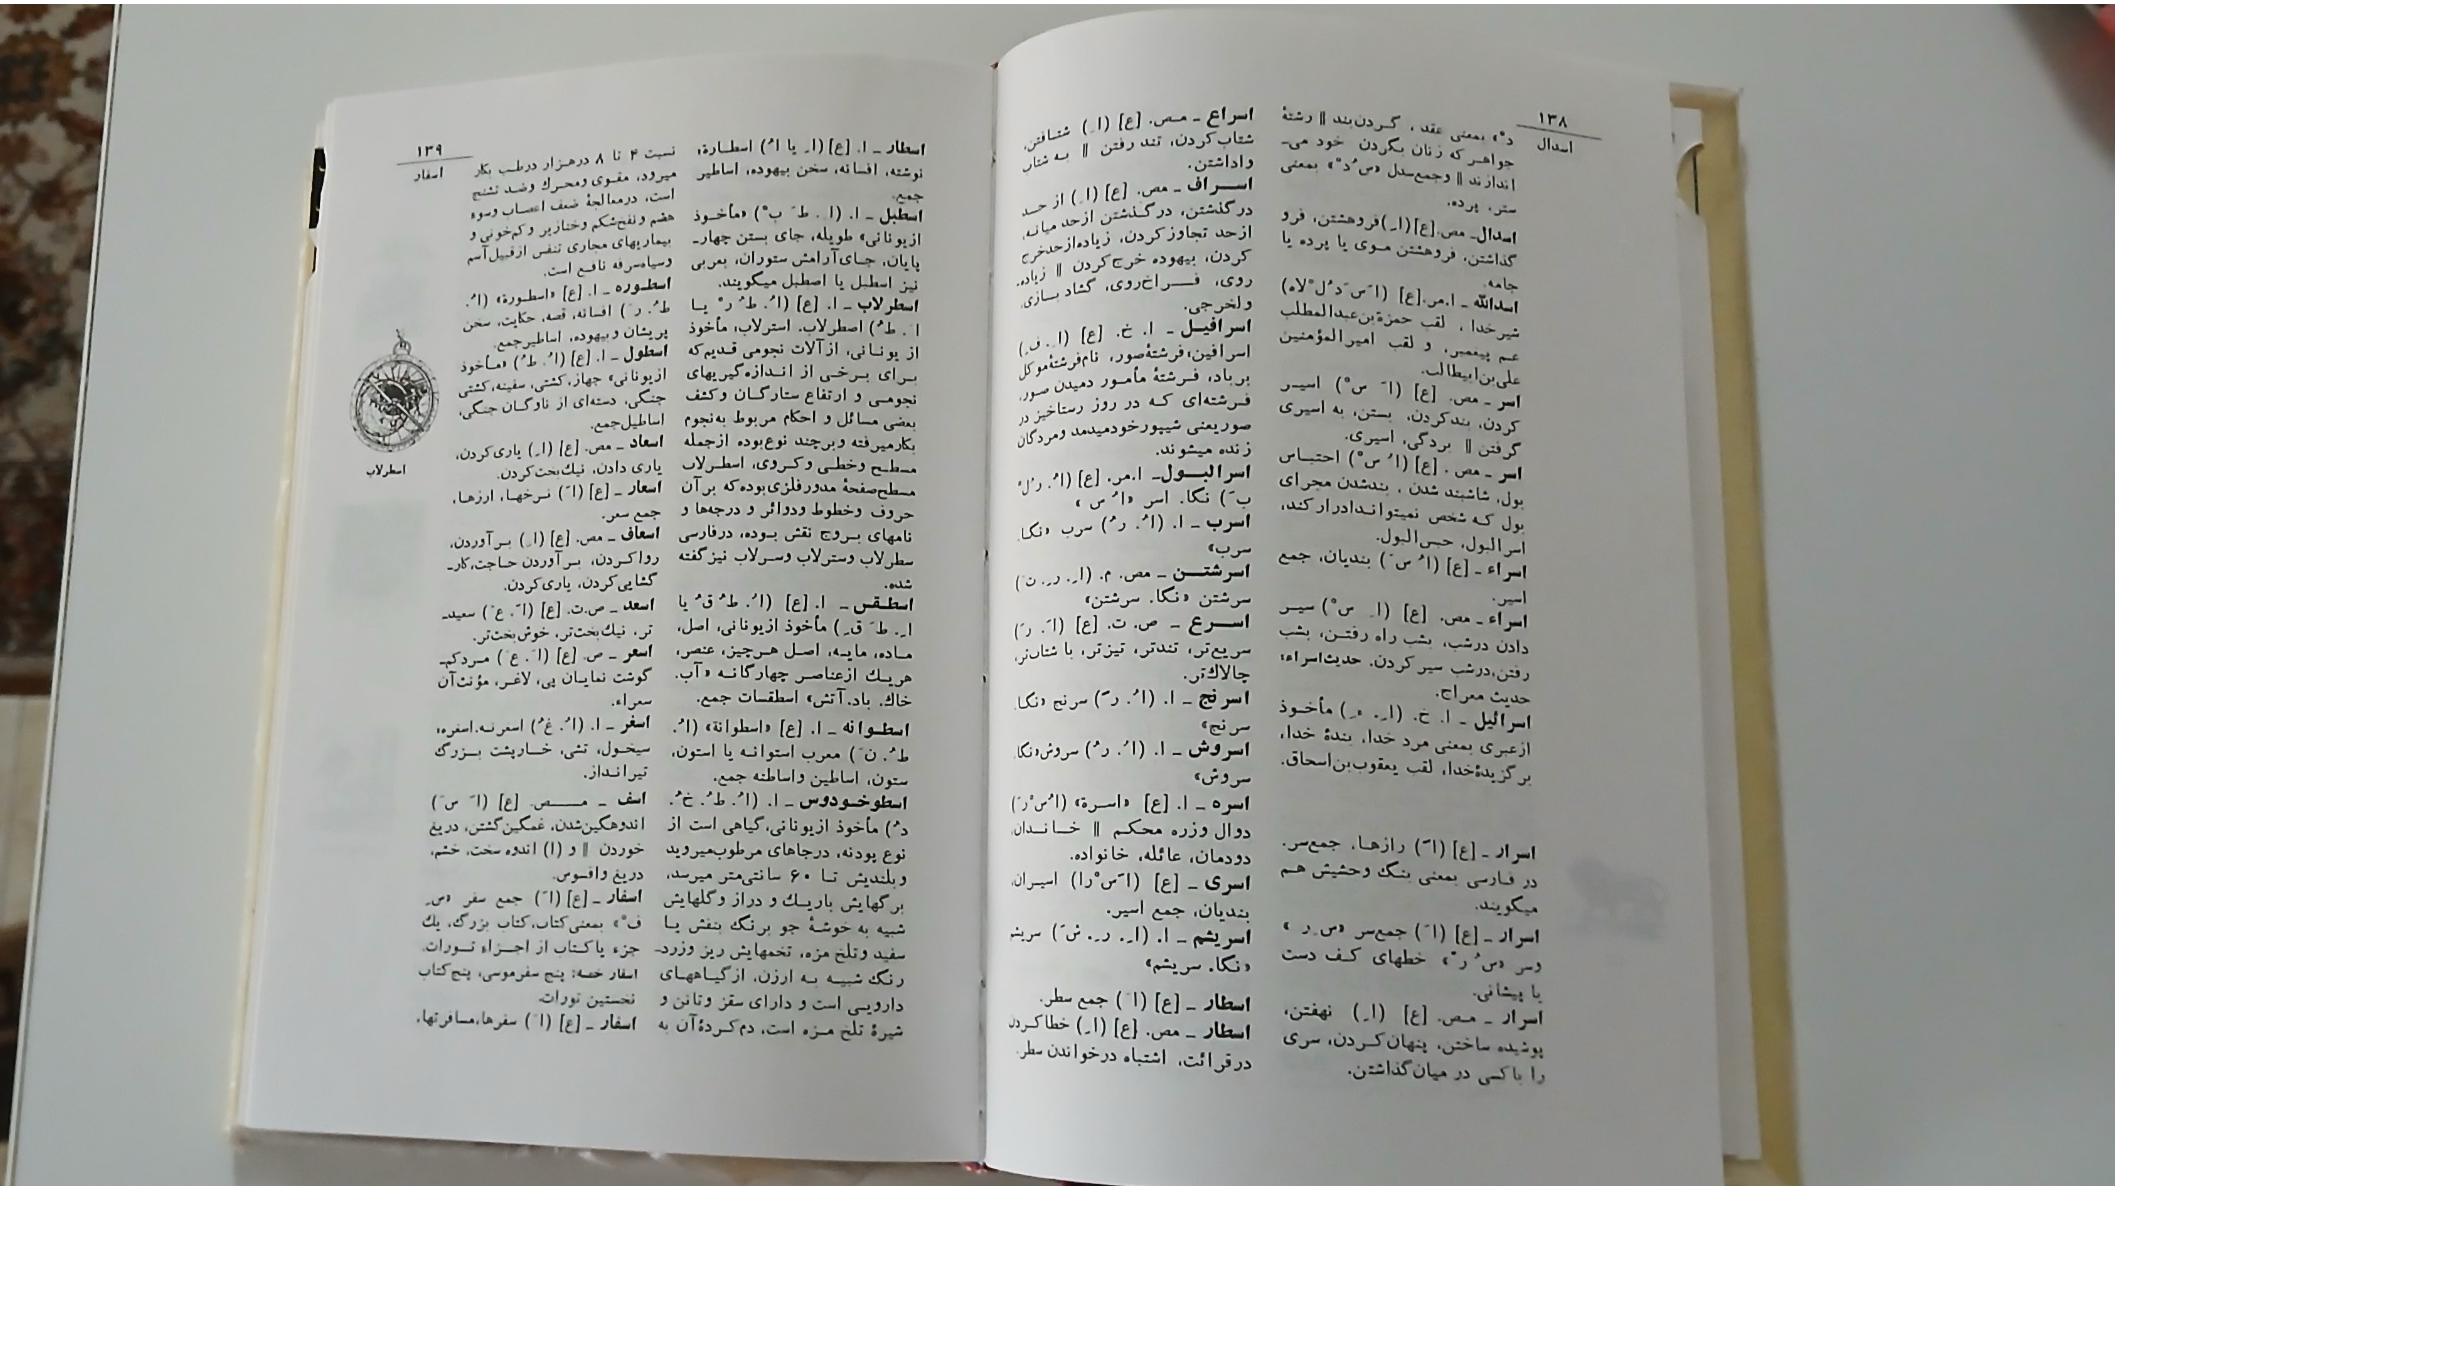 ۱۳۸
اسدال
دْ» بمعنی عقد، گردن‌بند || رشتهٔ
جواهر که زنان بگردن خود می‌ـ
اندازند || وجمع سدل «سُ‌دْ» بمعنی
ستر، پرده.
اسدال ـ مص. [ع] (اِ) فروهشتن، فرو
گذاشتن، فروهشتن موی یا پرده یا
جامه.
اسدالله ـ ا.مر. [ع] (اَ‌سَ‌دُ‌لْ‌لاه)
شیرخدا، لقب حمزة بن عبدالمطلب
عم پیغمبر، و لقب امیرالمؤمنین
علی بن ابیطالب.
اسر ـ مص. [ع] (اَ سْ) اسیر
کردن، بند کردن، بستن، به اسیری
گرفتن || بردگی، اسیری.
اسر ـ مص. [ع] (اُ سْ) احتباس
بول، شاشبند شدن، بندشدن مجرای
بول که شخص نمیتواند ادرار کند،
اسرالبول، حبس‌البول.
اسراء ـ [ع] (اُ سَ) بندیان، جمع
اسیر.
اسراء ـ مص. [ع] (اِ سْ) سیر
دادن درشب، بشب راه رفتن، بشب
رفتن، درشب سیر کردن. حدیث اسراء:
حدیث معراج.
اسرائیل ـ ا. خ. (اِ. ءِ) مأخوذ
ازعبری بمعنی مرد خدا، بندهٔ خدا،
برگزیدهٔ خدا، لقب یعقوب بن اسحاق.
اسرار ـ [ع] (اَ) رازها، جمع سر.
در فارسی بمعنی بنگ وحشیش هم
میگویند.
اسرار ـ [ع] (اَ) جمع سر «سِ‌ر»
وسر «سُ‌رْ» خطهای کف دست
یا پیشانی.
اسرار ـ مص. [ع] (اِ) نهفتن،
پوشیده ساختن، پنهان کردن، سری
را باکسی در میان گذاشتن.
اسراع ـ مص. [ع] (اِ) شتافتن،
شتاب کردن، تند رفتن || به شتاب
واداشتن.
اسراف ـ مص. [ع] (اِ) از حد
درگذشتن، درگذشتن ازحد میانه،
ازحد تجاوز کردن، زیاده ازحد خرج
کردن، بیهوده خرج کردن || زیاده.
روی، فراخ‌روی، گشاد بازی،
ولخرجی.
اسرافیل ـ ا. خ. [ع] (اِ. فِ)
اسرافین، فرشتهٔ صور، نام فرشتهٔ موکل
برباد، فرشتهٔ مأمور دمیدن صور،
فرشته‌ای که در روز رستاخیز در
صور یعنی شیپور خود میدمد و مردگان
زنده میشوند.
اسرالبول ـ ا.مر. [ع] (اُ. رُلْ
بَ) نگا. اسر «اُ س»
اسرب ـ ا. (اُ. رُ) سرب «نگا.
سرب»
اسرشتن ـ مص. م. (اِ. رِ. تَ)
سرشتن «نگا. سرشتن»
اسرع ـ ص. ت. [ع] (اَ. رَ)
سریع‌تر، تندتر، تیزتر، با شتاب‌تر،
چالاک‌تر.
اسرنج ـ ا. (اُ. رَ) سرنج «نگا.
سرنج»
اسروش ـ ا. (اُ. رُ) سروش «نگا.
سروش»
اسره ـ ا. [ع] «اسرة» (اُسْ‌رَ)
دوال وزره محکم || خاندان،
دودمان، عائله، خانواده.
اسری ـ [ع] (اَسْ‌را) اسیران،
بندیان، جمع اسیر.
اسریشم ـ ا. (اِ. رِ. شَ) سریشم
«نگا. سریشم»
اسطار ـ [ع] (اَ) جمع سطر.
اسطار ـ مص. [ع] (اِ) خطا کردن
درقرائت، اشتباه درخواندن سطر.
۱۳۹
اسفار
اسطار ـ ا. [ع] (اِ یا اُ) اسطارة،
نوشته، افسانه، سخن بیهوده، اساطیر
جمع.
اسطبل ـ ا. (اِ. طَ بْ) «مأخوذ
ازیونانی» طویله، جای بستن چهارـ
پایان، جای آرامش ستوران، بعربی
نیز اسطبل یا اصطبل میگویند.
اسطرلاب ـ ا. [ع] (اُ. طُ رْ یا
اَ. طُ) اصطرلاب. استرلاب، مأخوذ
از یونانی، از آلات نجومی قدیم که
برای برخی از اندازه‌گیریهای
نجومی و ارتفاع ستارگان و کشف
بعضی مسائل و احکام مربوط به نجوم
بکار میرفته و برچند نوع بوده ازجمله
مسطح وخطی وکروی، اسطرلاب
مسطح صفحهٔ مدور فلزی بوده که برآن
حروف وخطوط ودوائر و درجه‌ها و
نامهای بروج نقش بوده، درفارسی
سطرلاب وسترلاب وسرلاب نیز گفته
شده.
اسطقس ـ ا. [ع] (اُ. طُ قُ یا
اِ. طَ قِ) مأخوذ ازیونانی، اصل،
ماده، مایه، اصل هرچیز، عنصر،
هریک ازعناصر چهارگانه «آب.
خاك. باد. آتش» اسطقسات جمع.
اسطوانه ـ ا. [ع] «اسطوانة» (اُ.
طُ. نَ) معرب استوانه یا استون،
ستون، اساطین واساطنه جمع.
اسطوخودوس ـ ا. (اُ. طُ. خُ.
دُ) مأخوذ ازیونانی، گیاهی است از
نوع پودنه، درجاهای مرطوب میروید
وبلندیش تا ۶۰ سانتی‌متر میرسد،
برگهایش باریك و دراز وگلهایش
شبیه به خوشهٔ جو برنگ بنفش یا
سفید وتلخ مزه، تخمهایش ریز وزردـ
رنگ شبیه به ارزن، ازگیاههای
دارویی است و دارای سقز وتانن و
شیرهٔ تلخ مزه است، دم کردهٔ آن به
نسبت ۴ تا ۸ درهزار درطب بکار
میرود، مقوی ومحرك وضد تشنج
است، درمعالجهٔ ضعف اعصاب وسوء
هضم ونفخ شکم وخنازیر وکم‌خونی و
بیماریهای مجاری تنفس ازقبیل آسم
وسیاه سرفه نافع است.
اسطوره ـ ا. [ع] «اسطورة» (اُ.
طُ. رَ) افسانه، قصه، حکایت، سخن
پریشان و بیهوده، اساطیر جمع.
اسطول ـ ا. [ع] (اُ. طُ) «مأخوذ
ازیونانی» جهاز، کشتی، سفینه، کشتی
جنگی، دسته‌ای از ناوگان جنگی،
اساطیل جمع.
اسعاد ـ مص. [ع] (اِ) یاری کردن،
یاری دادن، نیك‌بخت کردن.
اسعار ـ [ع] (اَ) نرخها، ارزها،
جمع سعر.
اسعاف ـ مص. [ع] (اِ) برآوردن،
روا کردن، برآوردن حاجت، کارـ
گشایی کردن، یاری کردن.
اسعد ـ ص.ت. [ع] (اَ. عَ) سعیدـ
تر، نیك‌بخت‌تر، خوش‌بخت‌تر.
اسعر ـ ص. [ع] (اَ. عَ) مردکم‌ـ
گوشت نمایان پی، لاغر، مؤنث آن
سعراء.
اسغر ـ ا. (اُ. غُ) اسغرنه. اسغره،
سیخول، تشی، خارپشت بزرگ
تیرانداز.
اسف ـ مص. [ع] (اَ سَ)
اندوهگین شدن، غمگین گشتن، دریغ
خوردن || و (ا) اندوه سخت، خشم،
دریغ وافسوس.
اسفار ـ [ع] (اَ) جمع سفر «سِ
فْ» بمعنی کتاب، کتاب بزرگ، یك
جزء یاکتاب از اجزاء تورات.
اسفار خمسه: پنج سفرموسی، پنج کتاب
نخستین تورات.
اسفار ـ [ع] (اَ) سفرها، مسافرتها،
اسطرلاب